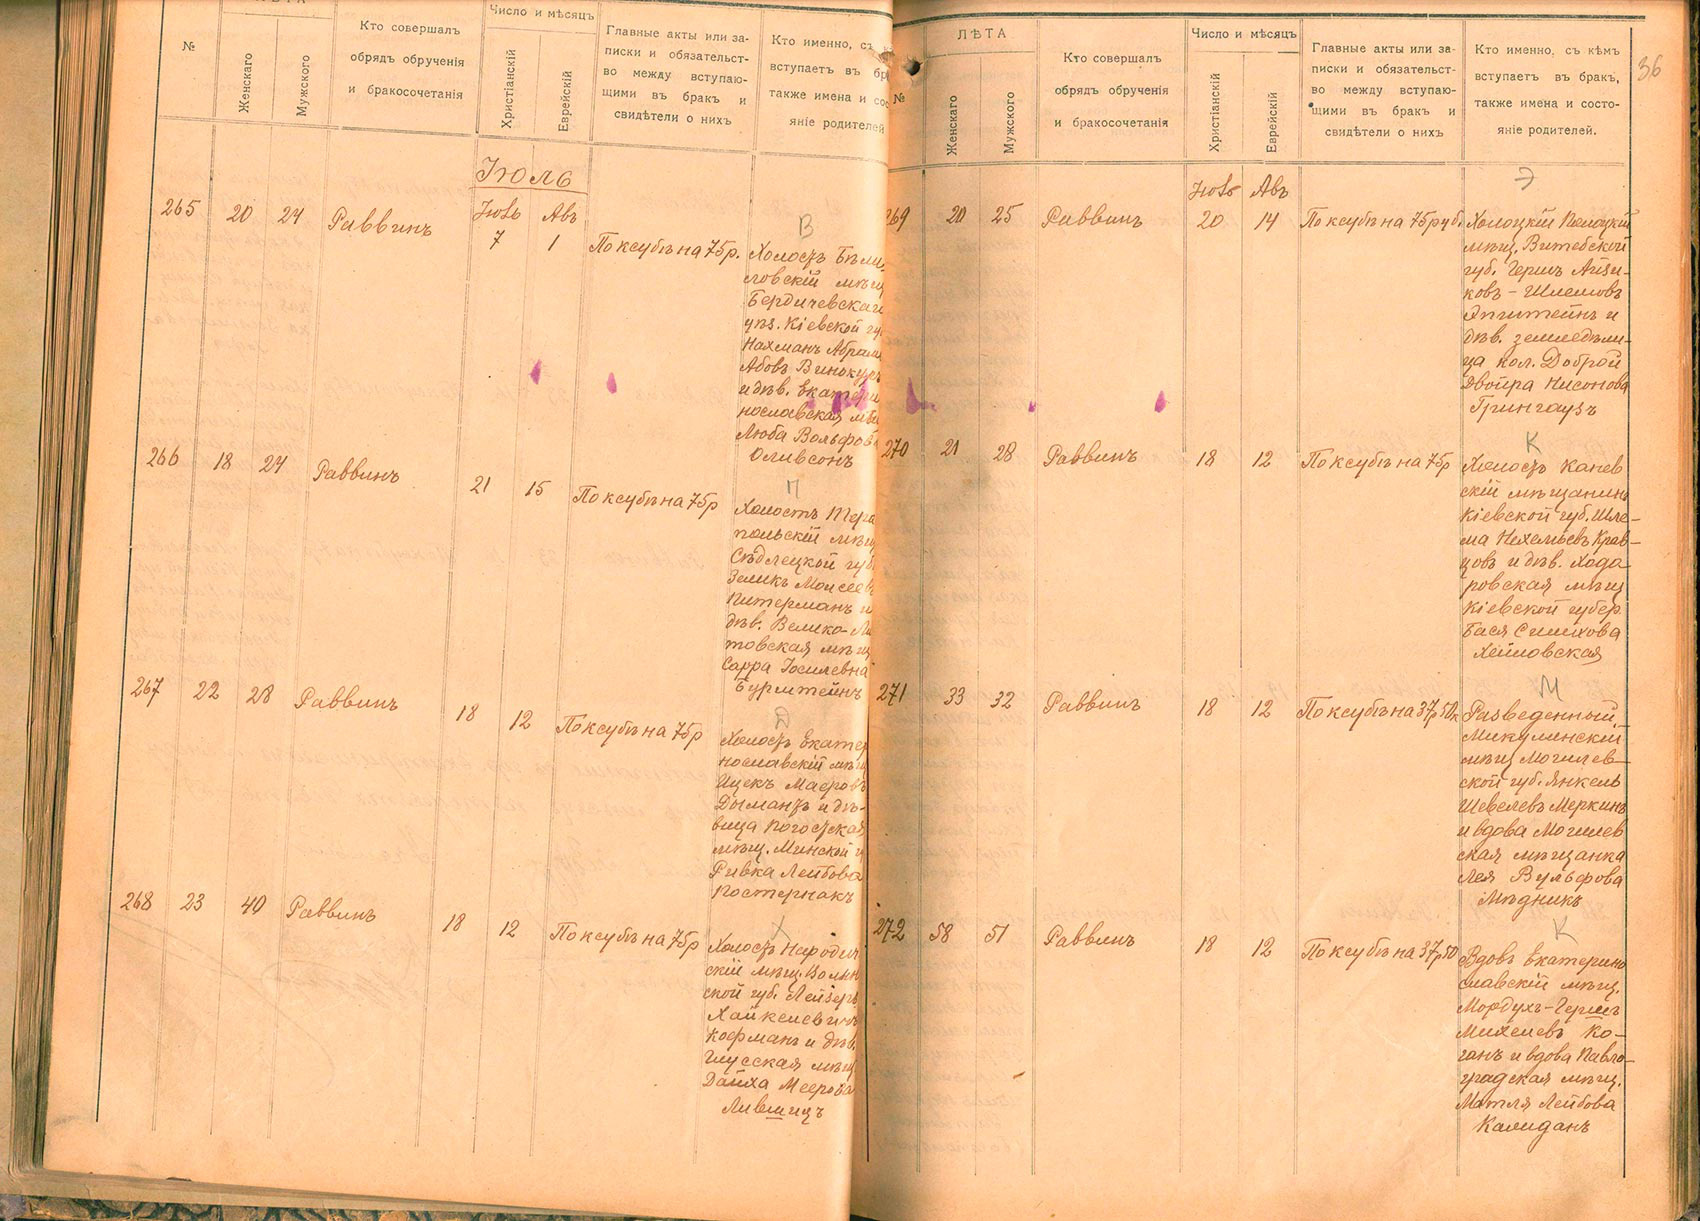 №
ЛѢТА
Женскаго
Мужского
Кто совершалъ
обрядъ обрученія
и бракосочетанія
Число и мѣсяцъ
Христіанскій
Еврейскій
Главные акты или за-
писки и обязательст-
во между вступаю-
щими въ бракъ и
свидѣтели о нихъ
Кто именно, съ
вступаетъ въ бр
также имена и сос
яніе родителей
Іюль
265 20 24 Раввинъ Іюль 7 Авъ 1 По ксубѣ на 75р.
В
Холостъ Бѣли
ловскій мѣщ
Бердичевскаго
уѣз. Кіевской гу
Нахманъ Абрам
Абовъ Винокуръ
и дѣв. Екатери
нославская мѣщ
Люба Вольфов
Оливсонъ
266 18 24 Раввинъ 21 15 По ксубѣ на 75р
П
Холостъ Тера
польскій мѣщ
Сѣдлецкой губ
Зеликъ Моисеев
Питерманъ и
дѣв. Велико-Ли
товская мѣщ
Сарра Іосилевна
Бурштейнъ
267 22 28 Раввинъ 18 12 По ксубѣ на 75р
Д
Холостъ Екатер
нославскій мѣщ
Ицекъ Маеровъ
Дымантъ и дѣ-
вица Погостская
мѣщ. Минской г
Ривка Лейбова
Постернакъ
268 23 40 Раввинъ 18 12 По ксубѣ на 75р
Холостъ Народич
скій мѣщ. Волын
ской губ. Лейзеръ
Хайкелевичъ
Кофманъ и дѣв.
Глусская мѣщ
Дайха Меерова
Лившицъ
36
№
ЛѢТА
Женскаго
Мужского
Кто совершалъ
обрядъ обрученія
и бракосочетанія
Число и мѣсяцъ
Христіанскій
Еврейскій
Главные акты или за-
писки и обязательст-
во между вступаю-
щими въ бракъ и
свидѣтели о нихъ
Кто именно, съ кѣмъ
вступаетъ въ бракъ,
также имена и состо-
яніе родителей.
269 20 25 Раввинъ Іюль 20 Авъ 14 По ксубѣ на 75 руб.
Э
Полоцкій
мѣщ. Витебской
губ. Гершъ Айзи-
ковъ-Шлемовъ
Эпштейнъ и
дѣв. земледѣли-
ца кол. Доброй
Двойра Нисонова
Грингаузъ
270 21 28 Раввинъ 18 12 По ксубѣ на 75р
К
Холостъ Канев
скій мѣщанинъ
Кіевской губ. Шле-
ма Нехемьевъ Крав-
цовъ и дѣв. Хода
ровская мѣщ
Кіевской губер.
Бася Симхова
271 33 32 Раввинъ 18 12 По ксубѣ на 37р 50к
М
Разведенный
Микулинскій
мѣщ Могилев-
ской губ. Янкель
Шевелевъ Меркинъ
и вдова Могилев
ская мѣщанка
Лея Вульфова
Мѣдникъ
272 58 51 Раввинъ 18 12 По ксубѣ на 37р 50
К
Вдовъ Екатерино
славскій мѣщ.
Мордухъ-Гершъ
Михелевъ Ко-
ганъ и вдова Павло-
градская мѣщ.
Матля Лейбова
Калиданъ